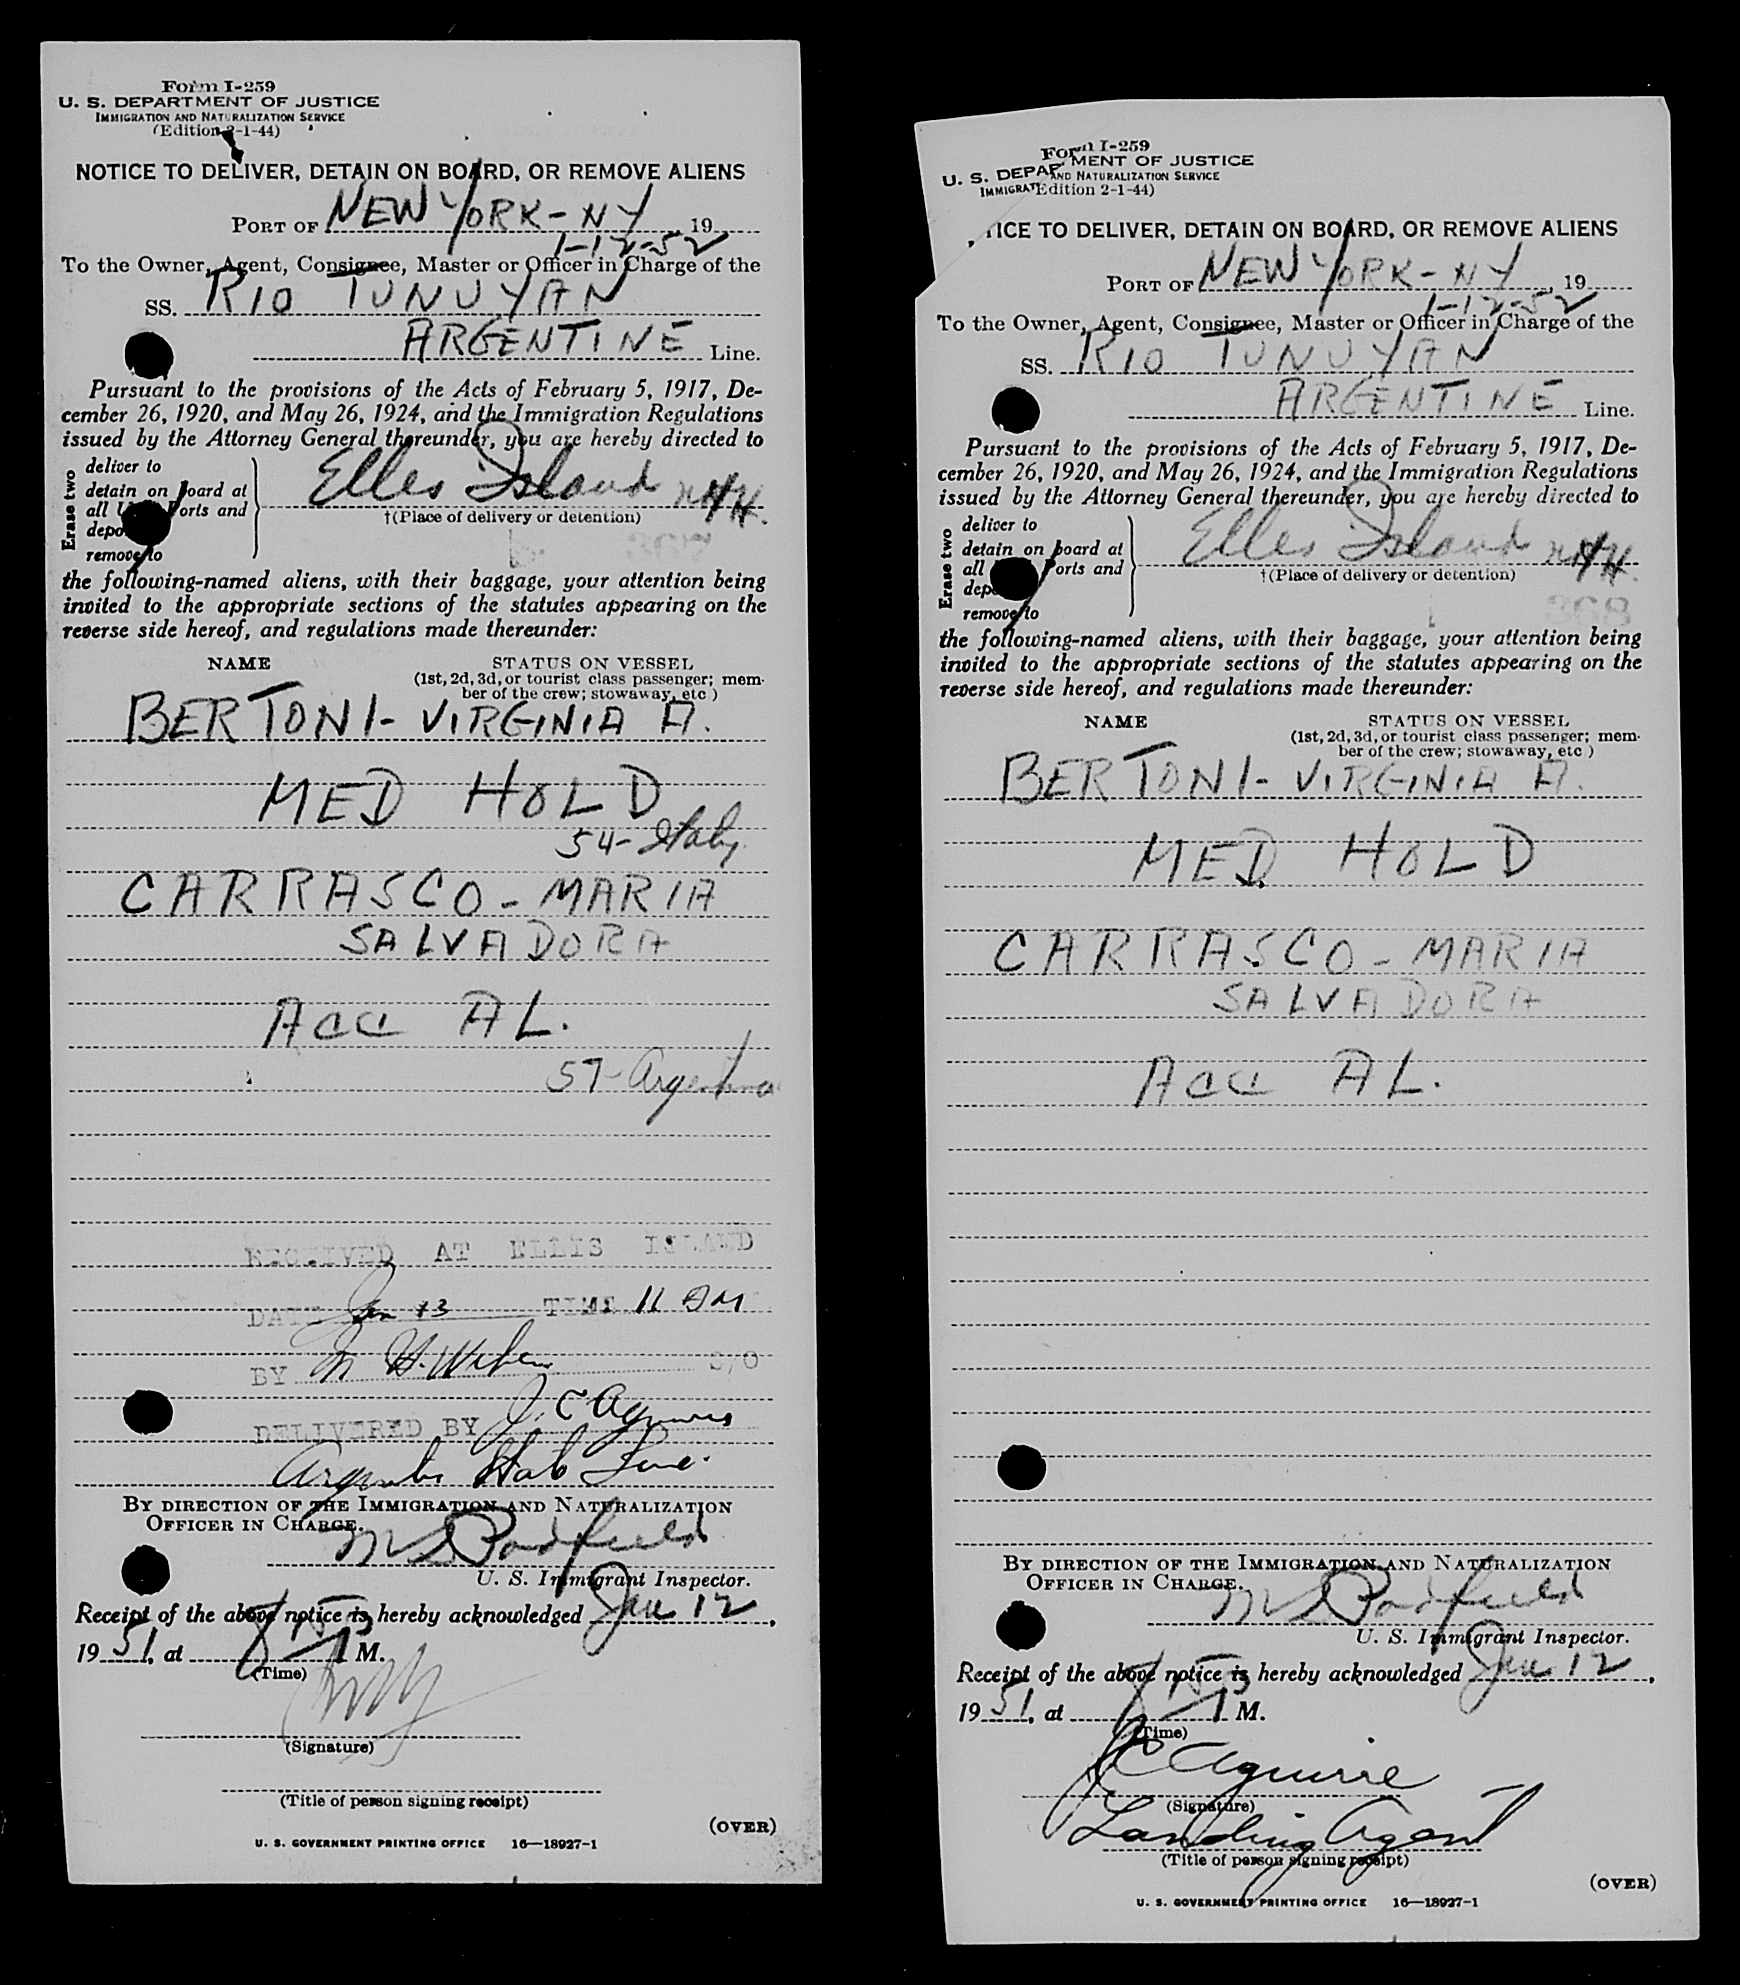 Form I-259
U. S. DEPARTMENT OF JUSTICE
IMMIGRATION AND NATURALIZATION SERVICE
(Edition 2-1-44)
NOTICE TO DELIVER, DETAIN ON BOARD, OR REMOVE ALIENS
PORT OF NEW YORK - NY, 19
1-12-52
To the Owner, Agent, Consignee, Master or Officer in Charge of the
SS. RIO TUNUYAN
ARGENTINE Line.
Pursuant to the provisions of the Acts of February 5, 1917, De-
cember 26, 1920, and May 26, 1924, and the Immigration Regulations
issued by the Attorney General thereunder, you are hereby directed to
Erase two
deliver to
detain on board at
all Ports and
remove to
Elles Island NYH.
†(Place of delivery or detention)
the following-named aliens, with their baggage, your attention being
invited to the appropriate sections of the statutes appearing on the
reverse side hereof, and regulations made thereunder:
NAME STATUS ON VESSEL
(1st, 2d, 3d, or tourist class passenger; mem-
ber of the crew; stowaway, etc)
BERTONI - VIRGINIA A.
MED HOLD
54 - Italy
CARRASCO - MARIA
SALVADORA
ACC AL.
57 - Argentina
RECEIVED AT ELLIS ISLAND
DATE Jan 13 TIME 11 AM
BY
DELIVERED BY J. C Aguirre
Line.
BY DIRECTION OF THE IMMIGRATION AND NATURALIZATION
OFFICER IN CHARGE.
M S Padfield
U. S. Immigrant Inspector.
Receipt of the above notice is hereby acknowledged Jan 12,
1951, at M.
(Time)
(Signature)
(Title of person signing receipt)
(OVER)
U. S. GOVERNMENT PRINTING OFFICE 16—18927-1
Form I-259
U. S. DEPAR MENT OF JUSTICE
IMMIGRAT AND NATURALIZATION SERVICE
Edition 2-1-44)
TICE TO DELIVER, DETAIN ON BOARD, OR REMOVE ALIENS
PORT OF NEW YORK - NY, 19
1-12-52
To the Owner, Agent, Consignee, Master or Officer in Charge of the
SS. RIO TUNUYAN
ARGENTINE Line.
Pursuant to the provisions of the Acts of February 5, 1917, De-
cember 26, 1920, and May 26, 1924, and the Immigration Regulations
issued by the Attorney General thereunder, you are hereby directed to
Erase two
deliver to
detain on board at
all Ports and
remove to
Elles Island NYH.
†(Place of delivery or detention)
368
the following-named aliens, with their baggage, your attention being
invited to the appropriate sections of the statutes appearing on the
reverse side hereof, and regulations made thereunder:
NAME STATUS ON VESSEL
(1st, 2d, 3d, or tourist class passenger; mem-
ber of the crew; stowaway, etc)
BERTONI - VIRGINIA A.
MED HOLD
CARRASCO - MARIA
SALVADORA
ACC AL.
BY DIRECTION OF THE IMMIGRATION AND NATURALIZATION
OFFICER IN CHARGE.
M S Padfield
U. S. Immigrant Inspector.
Receipt of the above notice is hereby acknowledged Jan 12,
1951, at M.
(Time)
J C Aguirre
(Signature)
Landing Agent
(Title of person signing receipt)
(OVER)
U. S. GOVERNMENT PRINTING OFFICE 16—18927-1